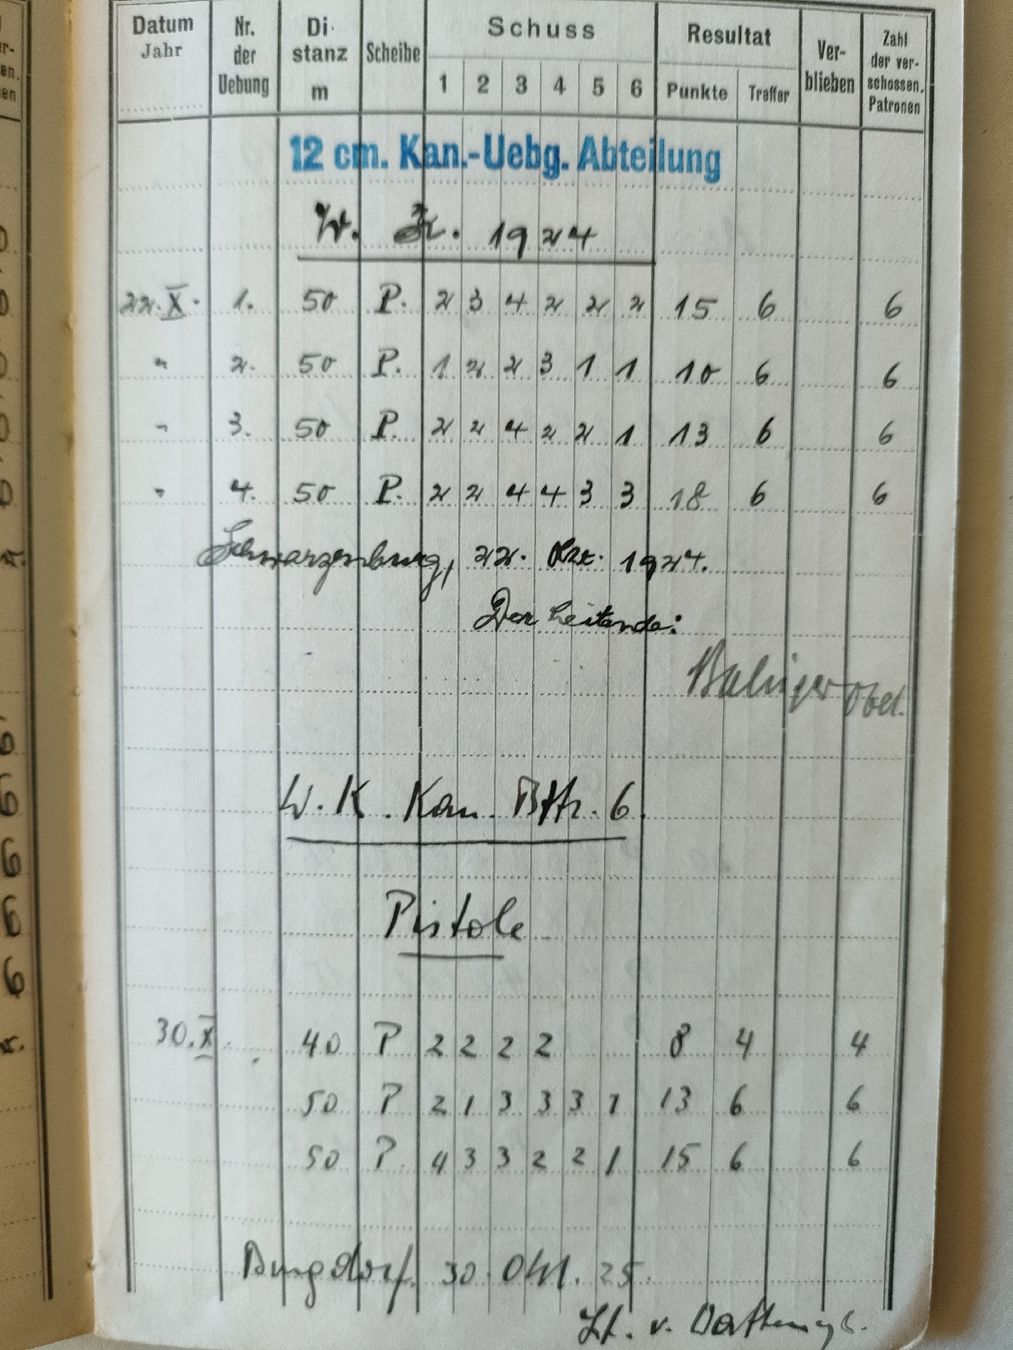 Datum Jahr Nr. der Uebung Di- stanz m Scheibe Schuss 1 2 3 4 5 6 Resultat Punkte Treffer Ver- blieben Zahl der ver- schossen. Patronen
12 cm. Kan.-Uebg. Abteilung
W. K. 1924
22. X. 1. 50 P. 2 3 4 2 2 2 15 6 6
" 2. 50 P. 1 2 2 3 1 1 10 6 6
" 3. 50 P. 2 2 4 2 2 1 13 6 6
" 4. 50 P. 2 2 4 4 3 3 18 6 6
Schwarzenburg, 22. Okt. 1924.
Der Leitende:
Oblt.
W. K. Kan. Bttr. 6.
Pistole
30. X 40 P 2 2 2 2 8 4 4
50 P 2 1 3 3 3 1 13 6 6
50 P. 4 3 3 2 2 1 15 6 6
Burgdorf. 30. Okt. 25.
Lt. v.